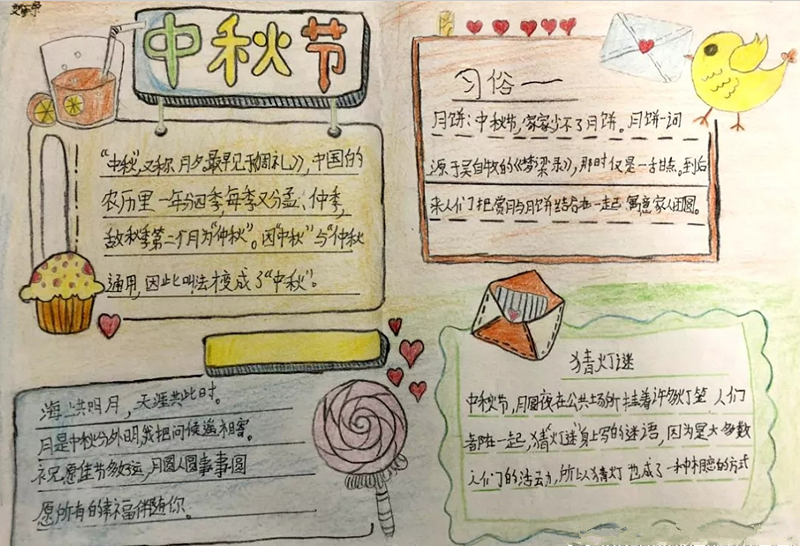 中秋节
"中秋",又称月夕,最早见于《周礼》,中国的
农历里一年分四季,每季又分孟、仲季,
故秋季第二个月为"仲秋"。因"中秋"与"仲秋
通用,因此叫法才变成了"中秋"。
海上共明月,天涯共此时。
月是中秋分外明,我把问候遥相寄。
祝愿佳节多好运,月圆人圆事事圆
愿所有的幸福伴随你。
习俗一
月饼:中秋节,家家少不了月饼。月饼一词
源于吴自牧的《梦梁录》,那时仅是一古甜点。到后
来人们把赏月与月饼结合在一起,寓意家人团圆。
猜灯谜
中秋节,月圆夜在公共场所挂着许多灯笼,人们
都在一起,猜"灯谜"身上写的谜语,因为是大多数
人们的活动,所以猜灯也成了一种相恋的方式